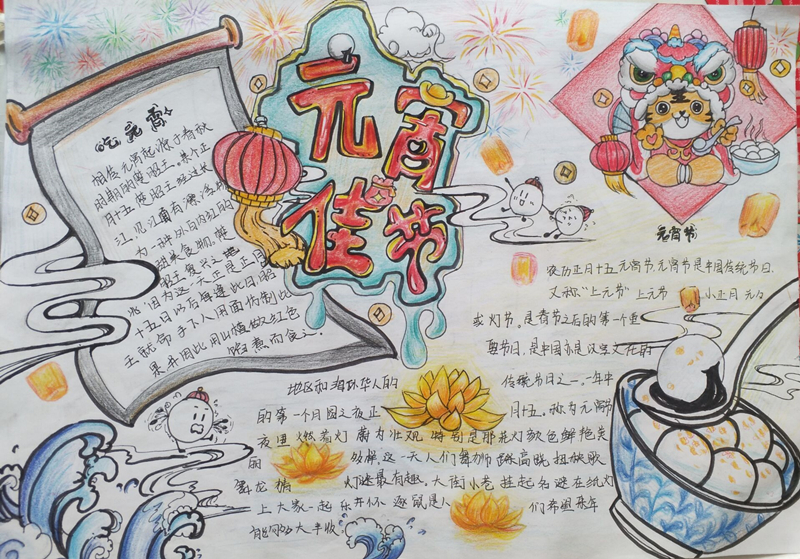 元宵佳节
吃元宵
相传元宵起源于春秋
时期的楚昭王。某个正
月十五楚昭王经过长
江,见江面有漂浮物,
为一种外白内红的
甜美食物。楚
昭王
说:因为这一天正是正月
十五日此后每逢此日,昭
王就命手下人用面仿制此
果并用山楂做红色
馅煮而食之
元宵节
农历正月十五元宵节,元宵节是中国传统节日,
又称"上元节"上元节 小正月 元夕
或灯节,是春节之后的第一个重
要节日,是中国亦是汉字文化的
地区和海外华人的 传统节日之一,一年中
的第一个月圆之夜正 月十五。称为元宵节
夜里燃花灯 蔚为壮观,特别是那花灯颜色鲜艳美
丽 人们舞狮 踩高跷 扭秧歌
舞龙 猜 灯谜最有趣。大街小巷 挂起各谜在纸灯
上大家一起乐开怀 们希望来年
能够大丰收